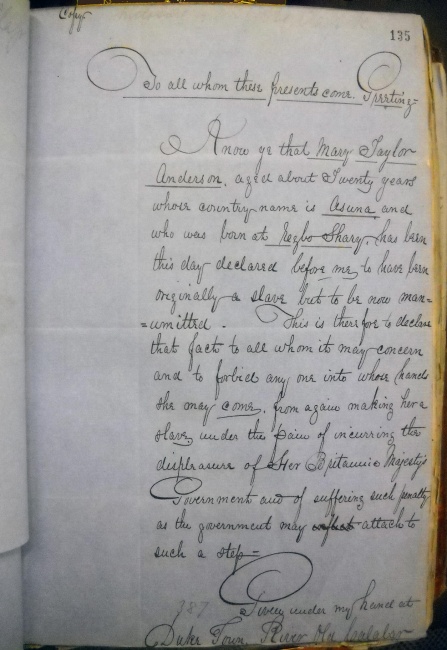 Copy
135
To all whom these presents come. Greeting=
Know ye that Mary Taylor
Anderson, aged about Twenty years
whose country name is Asuna and
who was born at Shary, has been
this day declared before me, to have been
originally a slave but to be now man=
=umitted. This is therefore to declare
that fact to all whom it may concern
and to forbid any one into whose hands
she may come, from again making her a
slave, under the pain of incurring the
displeasure of Her Britannic Majesty's
Government and of suffering such penalty
as the government may attach to
such a step=
387
Given under my hand at
Duke Town, River Old Calabar